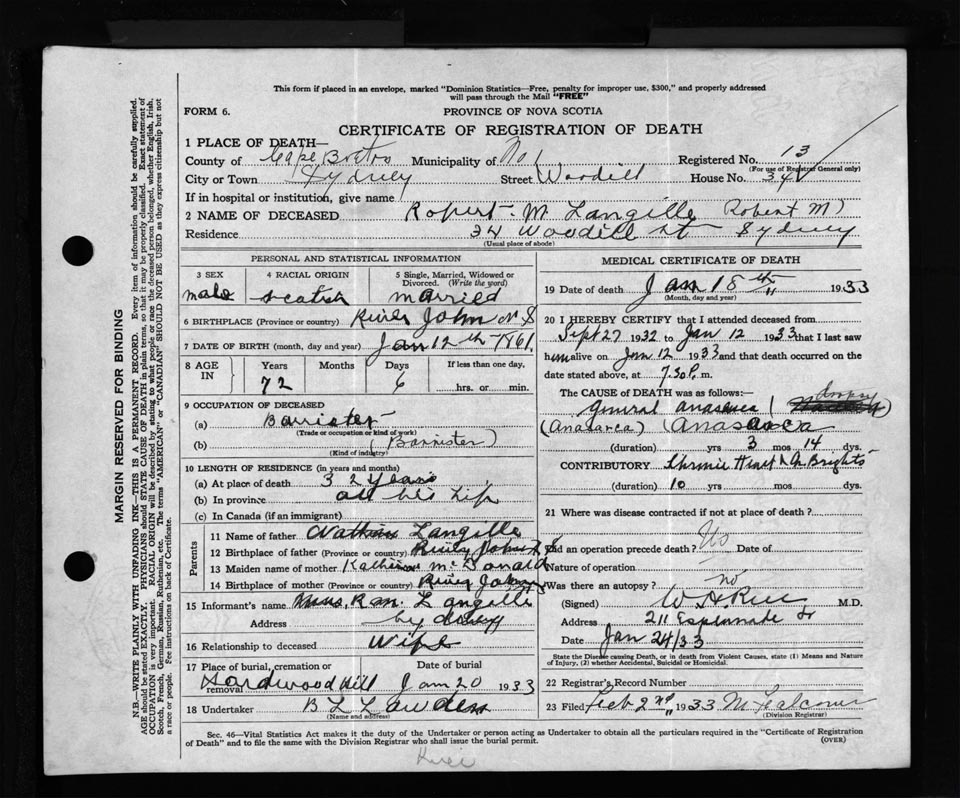 This form if placed in an envelope, marked "Dominion Statistics—Free, penalty for improper use, $300," and properly addressed
will pass through the Mail "FREE"
FORM 6.
PROVINCE OF NOVA SCOTIA
CERTIFICATE OF REGISTRATION OF DEATH
1 PLACE OF DEATH—
County of Cape Breton Municipality of No 1 Registered No. 13
(For use of Registrar General only)
City or Town Sydney Street Woodill House No. 34
If in hospital or institution, give name
2 NAME OF DECEASED Robert M. Langille (Robert M)
Residence 34 Woodill St Sydney
(Usual place of abode)
PERSONAL AND STATISTICAL INFORMATION
3 SEX 4 RACIAL ORIGIN 5 Single, Married, Widowed or Divorced. (Write the word)
male scotish married
6 BIRTHPLACE (Province or country) River John N S
7 DATE OF BIRTH (month, day and year) Jan 12th 1861.
8 AGE IN Years Months Days If less than one day,
72 6 hrs. or min.
9 OCCUPATION OF DECEASED
(a) Barrister
(Trade or occupation or kind of work)
(b) (Barrister)
(Kind of industry)
10 LENGTH OF RESIDENCE (in years and months)
(a) At place of death 32 years
(b) In province all his life
(c) In Canada (if an immigrant)
Parents
11 Name of father Langille
12 Birthplace of father (Province or country) River John N S
13 Maiden name of mother Katherine McDonald
14 Birthplace of mother (Province or country) River John
15 Informant's name Mrs. R. M. Langille
Address Sydney
16 Relationship to deceased Wife
17 Place of burial, cremation or removal Date of burial
Hardwood Hill Jan 20 1933
18 Undertaker B L Lawden
(Name and address)
MEDICAL CERTIFICATE OF DEATH
19 Date of death Jan 18th 1933
(Month, day and year)
20 I HEREBY CERTIFY that I attended deceased from
Sept 27 1932 to Jan 12 1933 that I last saw
him alive on Jan 12 1933 and that death occurred on the
date stated above, at 7.30 P. m.
The CAUSE OF DEATH was as follows:— dropsy
General anasarca
(Anasarca) (Anasarca
(duration) yrs 3 mos 14 dys.
CONTRIBUTORY Chronic Heart & Brights
(duration) 10 yrs mos dys.
21 Where was disease contracted if not at place of death?
Did an operation precede death? No Date of
Nature of operation
Was there an autopsy? no
(Signed) W H Rice M.D.
Address 211 Esplanade St
Date Jan 24/33
State the Disease causing Death, or in death from Violent Causes, state (1) Means and Nature
of Injury, (2) whether Accidental, Suicidal or Homicidal.
22 Registrar's Record Number
23 Filed Feb 2nd 1933 M Falconer
(Division Registrar)
Sec. 46—Vital Statistics Act makes it the duty of the Undertaker or person acting as Undertaker to obtain all the particulars required in the "Certificate of Registration
of Death" and to file the same with the Division Registrar who shall issue the burial permit. (OVER)
MARGIN RESERVED FOR BINDING
N.B.—WRITE PLAINLY WITH UNFADING INK—THIS IS A PERMANENT RECORD. Every item of information should be carefully supplied.
AGE should be stated EXACTLY. PHYSICIANS should STATE CAUSE OF DEATH in plain terms, so that it may be properly classified. Exact statement of
OCCUPATION is very important. RACIAL ORIGIN will be described by stating to what people or race the deceased person belonged, whether English, Irish,
Scotch, French, German, Russian, Ruthenian, etc. The terms "AMERICAN" or "CANADIAN" SHOULD NOT BE USED as they express citizenship but not
a race or people. Fee instructions on back of Certificate.